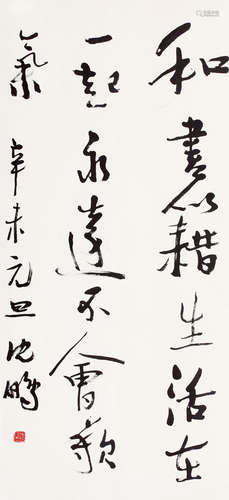 和書籍生活在
一起永遠不會歎
氣 辛未元旦 沈鵬